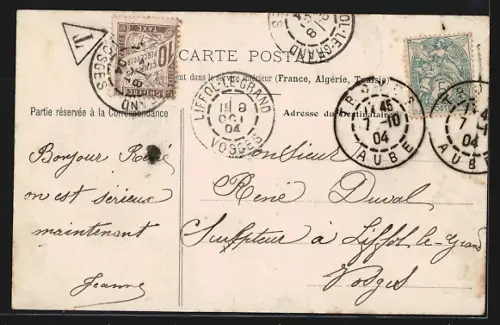 T
10
CENTIMES
A PERCEVOIR
TAXE
LIFFOL-LE-GRAND
VOSGES
CARTE POSTALE
ment dans le service intérieur (France, Algérie, Tunisie)
Partie réservée à la Correspondance
Adresse du Destinataire
LIFFOL-LE-GRAND
8
OCT
04
VOSGES
TROYES
14 45
7 -10
04
AUBE
Bonjour René
on est sérieux
maintenant
Jeanne
Monsieur
René Duval
Sculpteur à Liffol-le-Grand
Vosges